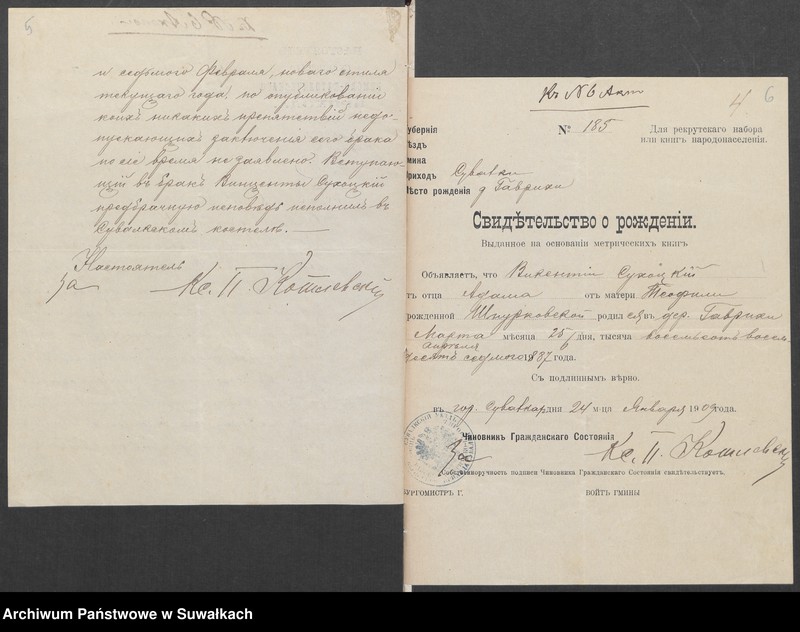 5
и седьмого Февраля, новаго стиля
текущаго года, по опубликовании
коихъ никакихъ препятствій недо-
пускающихъ заключенія сего брака
по сие время не заявлено. Вступаю-
щій въ бракъ Винцентъ Сухоцкій
предбрачную исповѣдь исполнилъ въ
Сувалкскомъ костелѣ. —
Настоятель
за Кс. П. Котлевскій
Къ N 6 Акт
4 6
убернія
№ 185
Для рекрутскаго набора
или книг народонаселенія.
ѣзд
мина
риход Сувалки
ѣсто рожденія д Гаврихи
Свидѣтельство о рожденіи.
Выданное на основаніи метрическихъ книгъ
Объявляетъ, что Викентій Сухоцкій
тъ отца Адама отъ матери Теофили
рожденной Шкурковской родился въ дер. Гаврихи
Марта мѣсяца 25 дня, тысяча восемьсотъ восемь
Апрѣля 6
десятъ седьмого 1887 года.
Съ подлиннымъ вѣрно.
въ гор. Сувалках дня 24 м-ца Января 1909 года.
Чиновникъ Гражданскаго Состоянія
за Кс. П. Котлевскій
Собственноручность подписи Чиновника Гражданскаго Состоянія свидѣтельствуетъ.
УРГОМИСТР Г. ВОЙТ ГМИНЫ
Archiwum Państwowe w Suwałkach